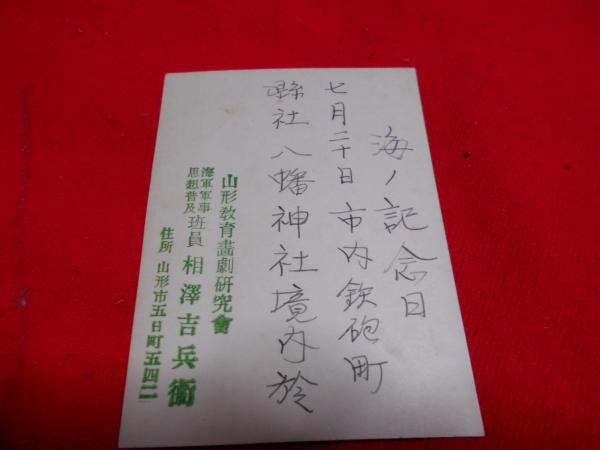 海ノ記念日
七月二十日市内鉄砲町
縣社八幡神社境内於
山形教育畵劇研究會
海軍軍事
思想普及
班員 相澤吉兵衞
住所 山形市五日町五四二